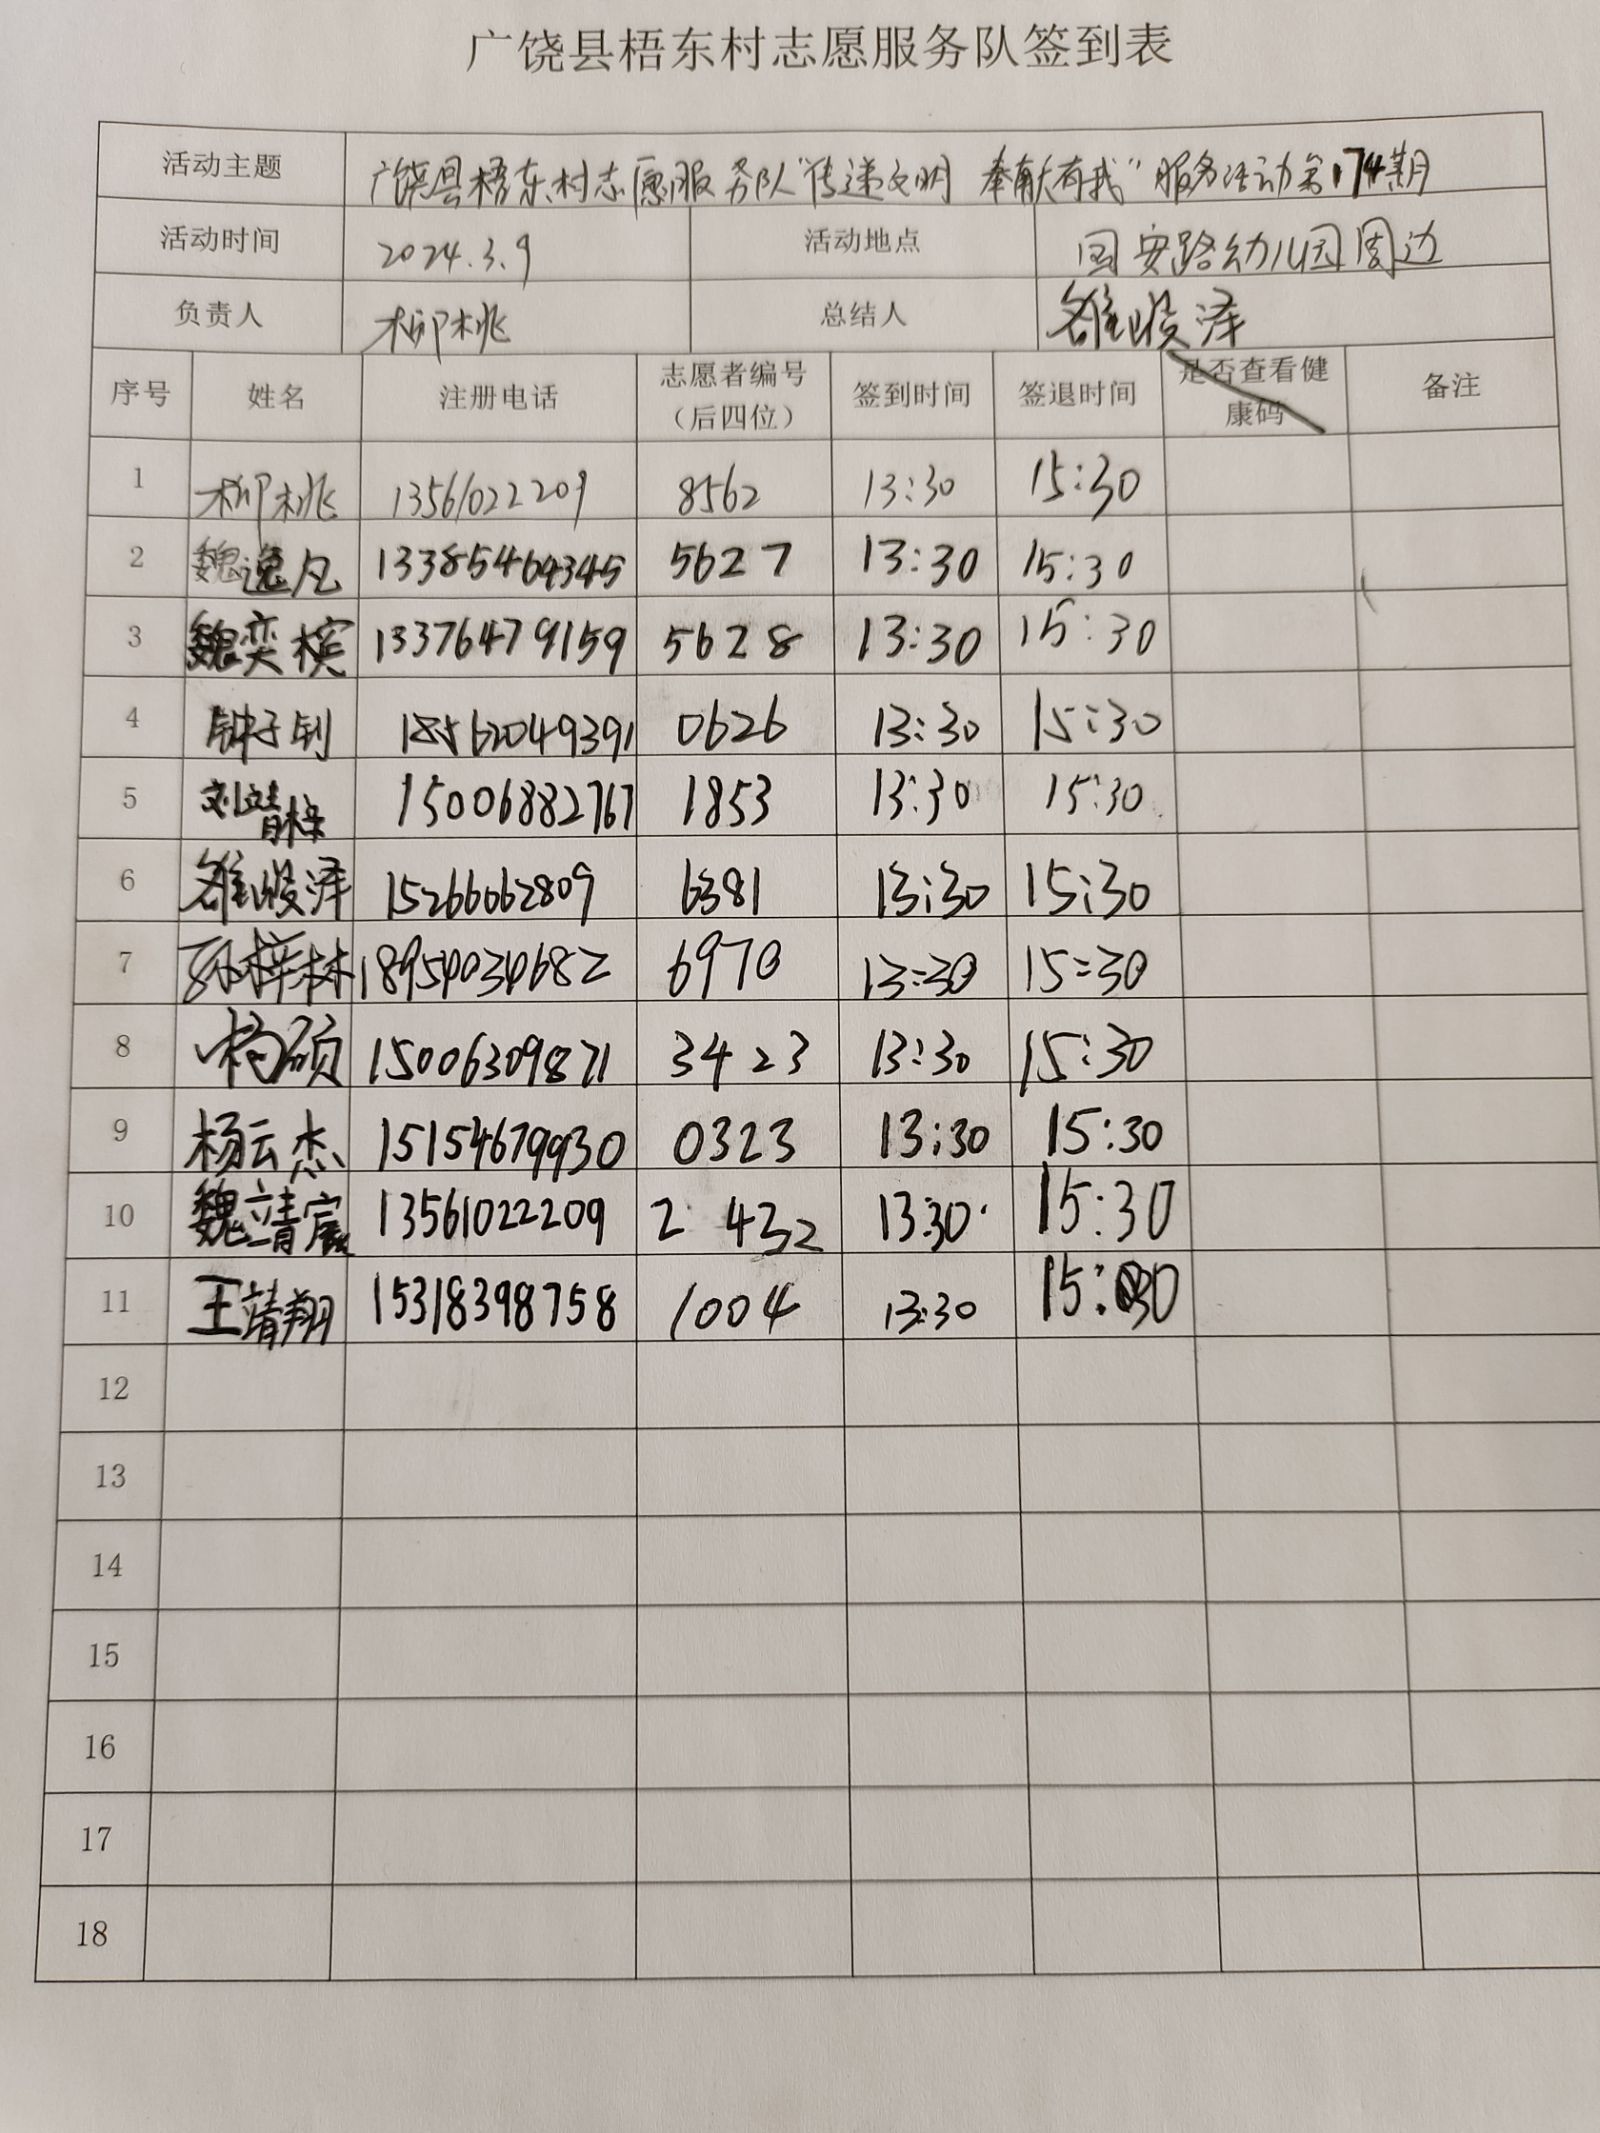 广饶县梧东村志愿服务队签到表
活动主题 广饶县梧东村志愿服务队“传递文明 奉献有我”服务活动第174期
活动时间 2024.3.9 活动地点 国安路幼儿园周边
负责人 柳桃 总结人 雒峻泽
序号 姓名 注册电话 志愿者编号（后四位） 签到时间 签退时间 是否查看健康码 备注
1 柳桃 13561022209 8562 13:30 15:30
2 魏逸凡 13385464345 5627 13:30 15:30
3 魏奕槟 13376479159 5628 13:30 15:30
4 钟子钊 18562049391 0626 13:30 15:30
5 刘靖 15006882767 1853 13:30 15:30
6 雒峻泽 15266062809 6381 13:30 15:30
7 孙梓林 18954034682 6970 13:30 15:30
8 杨硕 15006309871 3423 13:30 15:30
9 杨云杰 15154679930 0323 13:30 15:30
10 魏靖宸 13561022209 2432 13:30 15:30
11 王靖翔 15318398758 1004 13:30 15:30
12
13
14
15
16
17
18